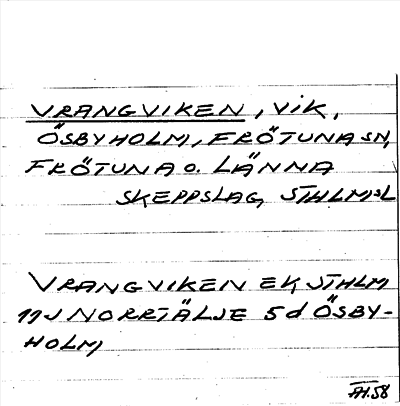 VRANGVIKEN, VIK,
ÖSBYHOLM, FRÖTUNA SN,
FRÖTUNA O. LÄNNA
SKEPPSLAG, STHLMSL
VRANGVIKEN EK STHLM
11J NORRTÄLJE 5d ÖSBY-
HOLM,
58